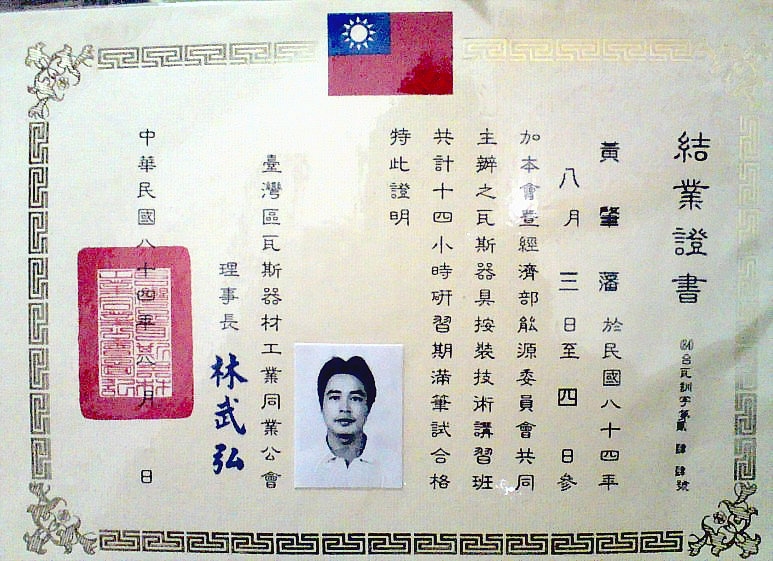 結業證書
(84)台瓦訓字第貳肆肆號
黃肇藩於民國八十四年
八月三日至四日參
加本會暨經濟部能源委員會共同
主辦之瓦斯器具按裝技術講習班
共計十四小時研習期滿筆試合格
特此證明
臺灣區瓦斯器材工業同業公會
理事長 林武弘
中華民國八十四年八月 日